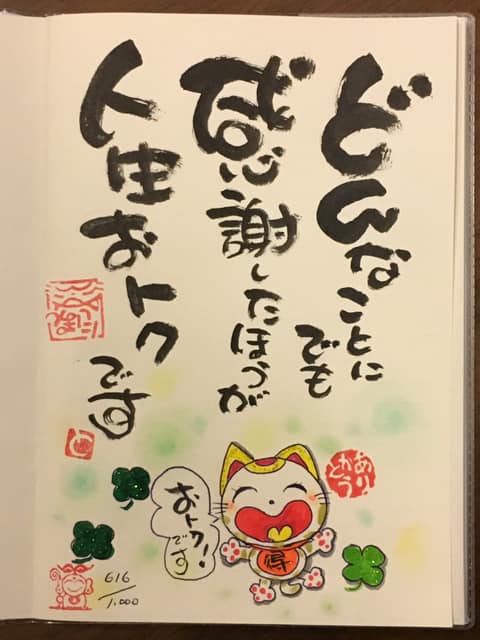 どんなことにでも
感謝したほうが
人生おトクです
おトク!
です
得
616/1,000